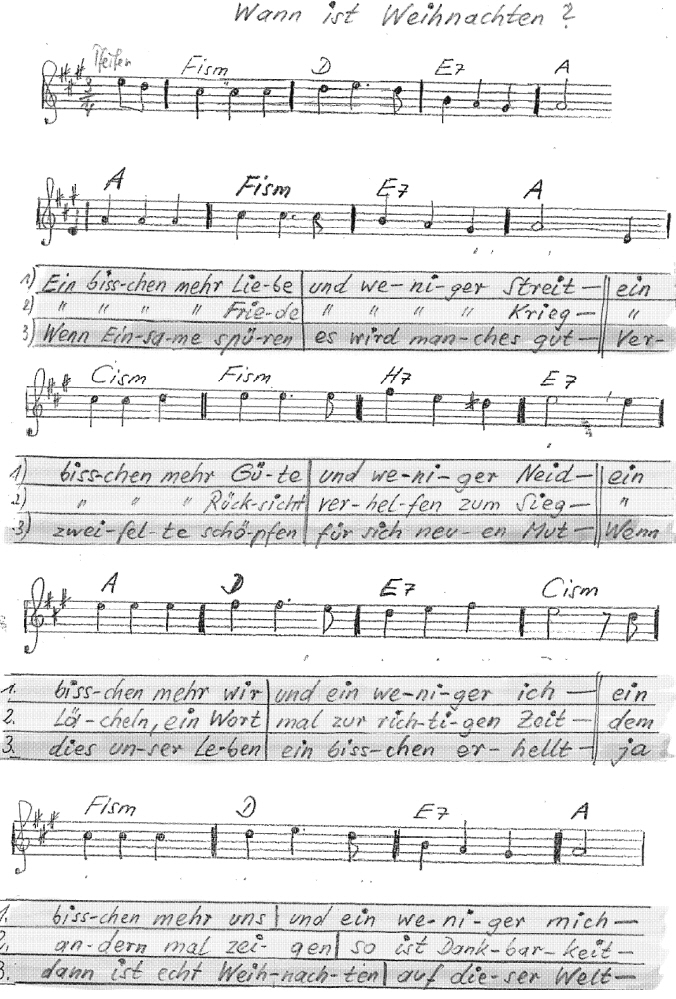 Wann ist Weihnachten ?
Pfeifen Fism D E7 A
3/4
A Fism E7 A
1) Ein biss-chen mehr Lie-be und we-ni-ger Streit- ein
2) " " " " Frie-de " " " " Krieg- "
3) Wenn Ein-sa-me spü-ren es wird man-ches gut- Ver-
Cism Fism H7 E7
1) biss-chen mehr Gü-te und we-ni-ger Neid- ein
2) " " " Rück-sicht ver-hel-fen zum Sieg- "
3) zwei-fel-te schö-pfen für sich neu-en Mut- Wenn
A D E7 Cism
1. biss-chen mehr wir und ein we-ni-ger ich- ein
2. Lä-cheln, ein Wort mal zur rich-ti-gen Zeit- dem
3. dies un-ser Le-ben ein biss-chen er-hellt- ja
Fism D E7 A
1. biss-chen mehr uns und ein we-ni-ger mich-
2. an-dern mal zei-gen so ist Dank-bar-keit-
3. dann ist echt Weih-nach-ten auf die-ser Welt-